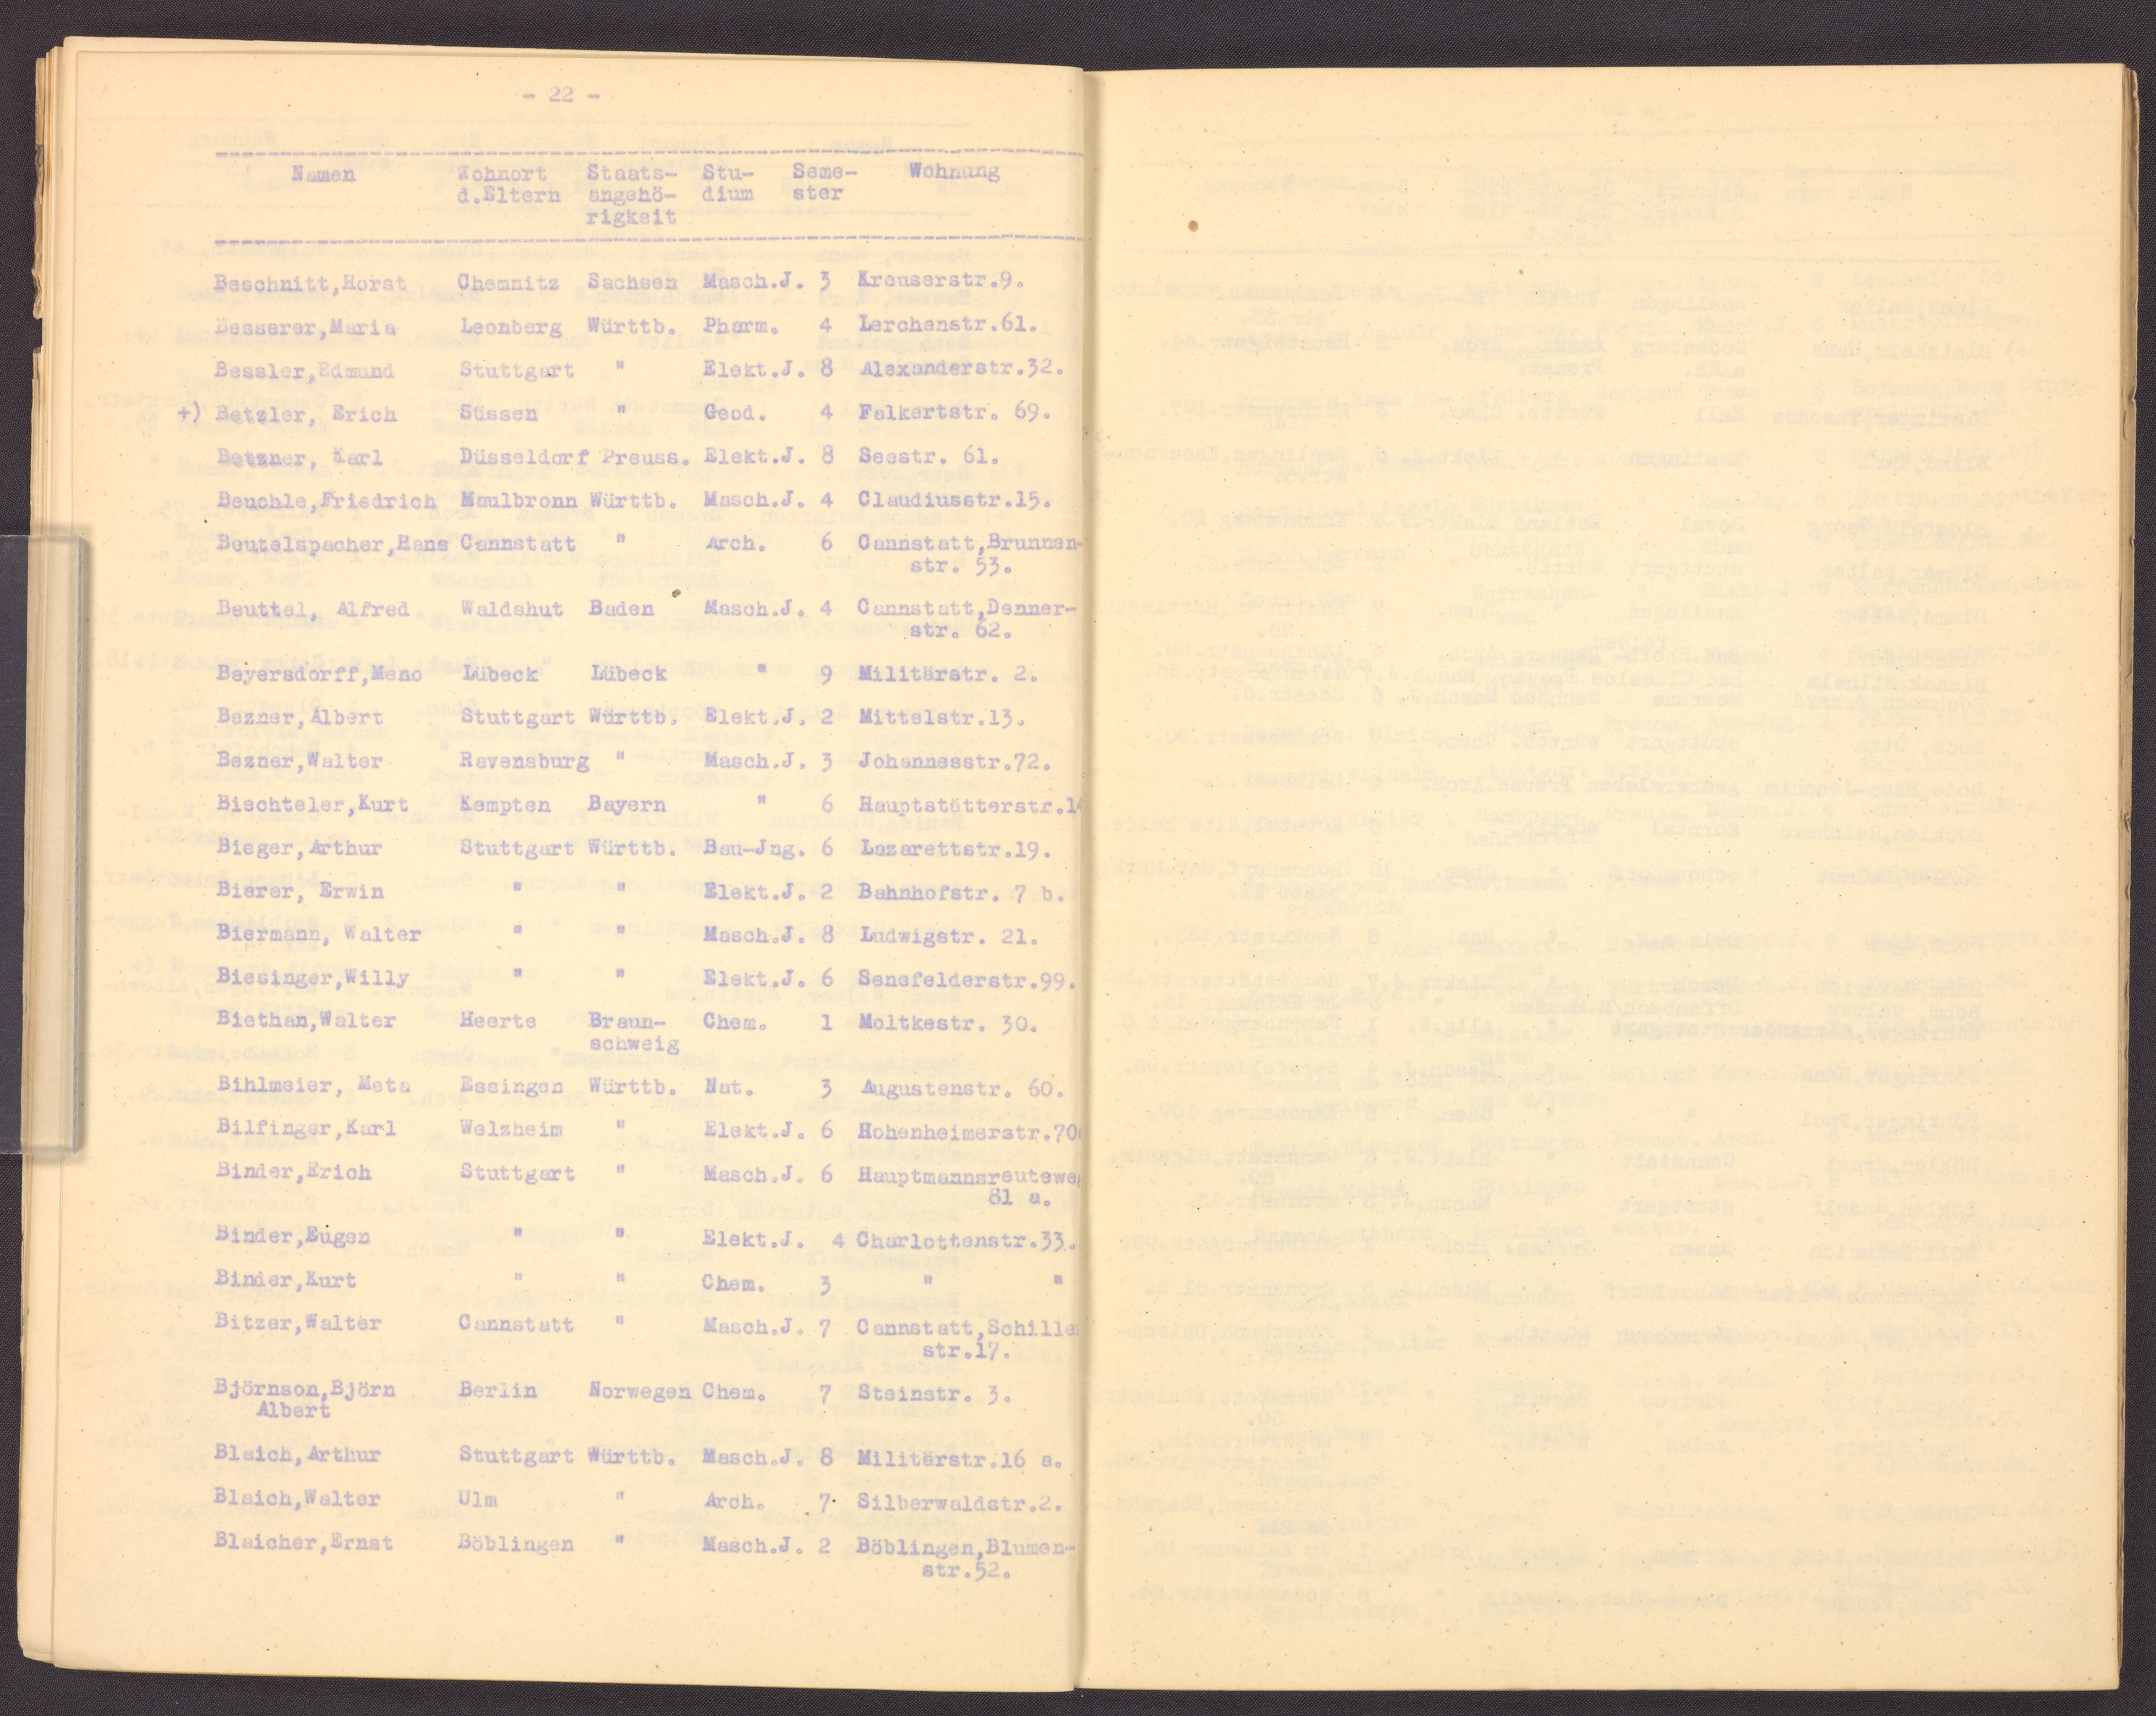 - 22 -
Namen Wohnort Staats- Stu- Seme- Wohnung
d.Eltern angehö- dium ster
rigkeit
Beschnitt,Horst Chemnitz Sachsen Masch.J. 3 Kreuserstr.9.
Besserer,Maria Leonberg Württb. Pharm. 4 Lerchenstr.61.
Bessler,Edmund Stuttgart " Elekt.J. 8 Alexanderstr.32.
+) Betzler, Erich Süssen " Geod. 4 Falkertstr. 69.
Betzner, Karl Düsseldorf Preuss. Elekt.J. 8 Seestr. 61.
Beuchle,Friedrich Maulbronn Württb. Masch.J. 4 Claudiusstr.15.
Beutelspacher,Hans Cannstatt " Arch. 6 Cannstatt,Brunnen-
str. 53.
Beuttel, Alfred Waldshut Baden Masch.J. 4 Cannstatt,Denner-
str. 62.
Beyersdorff,Meno Lübeck Lübeck " 9 Militärstr. 2.
Bezner,Albert Stuttgart Württb. Elekt.J. 2 Mittelstr.13.
Bezner,Walter Ravensburg " Masch.J. 3 Johannesstr.72.
Biechteler,Kurt Kempten Bayern " 6 Hauptstätterstr.1
Bieger,Arthur Stuttgart Württb. Bau-Jng. 6 Lazarettstr.19.
Bierer, Erwin " " Elekt.J. 2 Bahnhofstr. 7 b.
Biermann, Walter " " Masch.J. 8 Ludwigstr. 21.
Biesinger,Willy " " Elekt.J. 6 Senefelderstr.99.
Biethan,Walter Heerte Braun- Chem. 1 Moltkestr. 30.
schweig
Bihlmeier, Meta Essingen Württb. Nat. 3 Augustenstr. 60.
Bilfinger,Karl Welzheim " Elekt.J. 6 Hohenheimerstr.70
Binder,Erich Stuttgart " Masch.J. 6 Hauptmannsreutewe
81 a.
Binder,Eugen " " Elekt.J. 4 Charlottenstr.33.
Binder,Kurt " " Chem. 3 " "
Bitzer,Walter Cannstatt " Masch.J. 7 Cannstatt,Schille
str.17.
Björnson,Björn Berlin Norwegen Chem. 7 Steinstr. 3.
Albert
Blaich,Arthur Stuttgart Württb. Masch.J. 8 Militärstr.16 a.
Blaich,Walter Ulm " Arch. 7 Silberwaldstr.2.
Blaicher,Ernst Böblingen " Masch.J. 2 Böblingen,Blumen-
str.52.